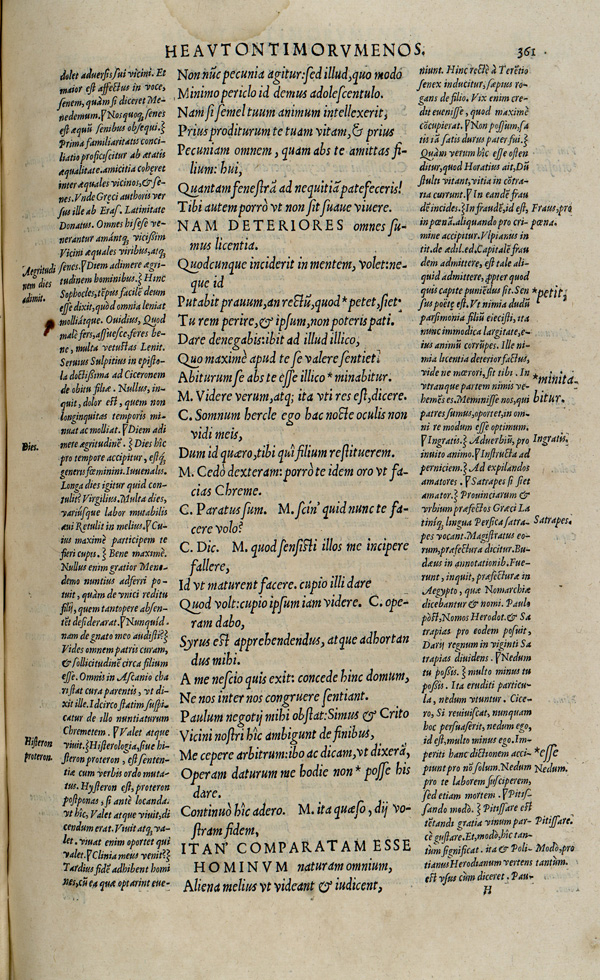 HEAVTONTIMORVMENOS. 361
dolet aduersis sui vicini. Et
maior est affectus in voce,
senem, quàm si diceret Me-
nedemum. ¶ Nosquoq, senes
est æquũ senibus obsequi. ⸹
Prima familiaritatis conci-
liatio proficiscitur ab ætatis
æqualitate. amicitia cohæret
inter æquales vicinos, & se-
nes. Vnde Græci authoris ver
sus ille ab Eras. Latinitate
Donatus. Omnes hi sese ve-
nerantur amántq, vicissim
Vicini æquales viribus, atq,
senes. ¶ Diem adimere ægri-
tudinem hominibus. ⸹ Hinc
Sophocles, tẽpus facilè deum
esse dixit, quòd omnia leniat
molliátque. Ouidius, Quod
malè fers, assuesce. feres be-
ne, multa vetustas Lenit.
Seruius Sulpitius in episto-
la doctissima ad Ciceronem
de obitu filiæ. Nullus, in-
quit, dolor est, quem non
longinquitas temporis mi-
nuat ac molliat. ¶ Diem adi
mere ægritudinẽ. ⸹ Dies hîc
pro tempore accipitur, estq,
generis fœminini. Iuuenalis.
Longa dies igitur quid con-
tulit? Virgilius. Multa dies,
variúsque labor mutabilis
æui Retulit in melius. ¶ Cu-
ius maximè participem te
fieri cupis. ⸹ Bene maximè.
Nullus enim gratior Mene-
demo nuntius adferri po-
tuit, quàm de vnici reditu
filij, quem tantopere absen-
tẽ desiderarat. ¶ Nunquid.
nam de gnato meo audisti? ⸹
Vides omnem patris curam,
& sollicitudinẽ circa filium
esse. Omnis in Ascanio cha
ri stat cura parentis, vt di-
xit ille. Idcirco statim suspi-
catur de illo nuntiaturum
Chremetem. ¶ Valet atque
viuit. ⸹ Histerologia, siue hi-
steron proteron, est senten-
tia cum verbis ordo muta-
tus. Hysteron est, proteron
postponas, si antè locanda.
vt hîc, Valet atque viuit, di
cendum erat. Viuit atq, va-
let. viuat enim oportet qui
valet. ¶ Clinia meus venit? ⸹
Tardius fidẽ adhibent homi
nes, cũ ea quæ optarint eue-
Ægritudi
nem dies
adimit.
Dies.
Histeron
proteron.
Non nũc pecunia agitur: sed illud, quo modo
Minimo periclo id demus adolescentulo.
Nam si semel tuum animum intellexerit,
Prius proditurum te tuam vitam, & prius
Pecuniam omnem, quam abs te amittas fi-
lium: hui,
Quantam fenestrã ad nequitiã patefeceris!
Tibi autem porrò vt non sit suaue viuere.
NAM DETERIORES omnes su-
mus licentia.
Quodcunque inciderit in mentem, volet: ne-
que id
Putabit prauum, an rectũ, quod * petet, fiet.
Tu rem perire, & ipsum, non poteris pati.
Dare denegabis: ibit ad illud illico,
Quo maximè apud te se valere sentiet.
Abiturum se abs te esse illico * minabitur.
M. Videre verum, atq; ita vti res est, dicere.
C. Somnum hercle ego hac nocte oculis non
vidi meis,
Dum id quæro, tibi quî filium restituerem.
M. Cedò dexteram: porrò te idem oro vt fa-
cias Chreme.
C. Paratus sum. M. scin' quid nunc te fa-
cere volo?
C. Dic. M. quod sensisti illos me incipere
fallere,
Id vt maturent facere. cupio illi dare
Quod volt: cupio ipsum iam videre. C. ope-
ram dabo,
Syrus est apprehendendus, atque adhortan
dus mihi.
A me nescio quis exit: concede hinc domum,
Ne nos inter nos congruere sentiant.
Paulum negotij mihi obstat: Simus & Crito
Vicini nostri hîc ambigunt de finibus,
Me cepere arbitrum: ibo ac dicam, vt dixerã,
Operam daturum me hodie non * posse his
dare.
Continuò hîc adero. M. ita quæso, dij vo-
stram fidem,
ITAN' COMPARATAM ESSE
HOMINVM naturam omnium,
Aliena melius vt videant & iudicent,
niunt. Hinc rectè à Terẽtio
senex inducitur, sæpius ro-
gans de filio. Vix enim cre-
dit euenisse, quod maximè
cõcupierat. ¶ Non possum sa
tis iã satis durus pater fui. ⸹
Quàm verum hîc esse osten
ditur, quod Horatius ait, Dũ
stulti vitant, vitia in cõtra-
ria currunt. ¶ In eandẽ frau
dẽ incides. ⸹ In fraudẽ, id est,
in pœnã. aliquando pro cri-
mine accipitur. Vlpianus in
tit. de ædil. ed. Capitalẽ frau
dem admittere, est tale ali-
quid admittere, ꝓpter quod
quis capite puniẽdus sit. Sen
sus poëtę est. Vt nimia dudũ
parsimonia filiũ eiecisti, ita
nunc immodica largitate, e-
ius animũ corrũpes. Ille ni-
mia licentia deterior factus,
vide ne mœrori, sit tibi. In
vtranque partem nimis ve-
hemẽs es. Meminisse nos, qui
patres sumus, oportet, in om-
ni re modum esse optimum.
¶ Ingratis. ⸹ Aduerbiũ, pro
inuito animo. ¶ Instructa ad
perniciem. ⸹ Ad expilandos
amatores. ¶ Satrapes si siet
amator. ⸹ Prouinciarum &
vrbium præfectos Græci La
tiniq, lingua Persica satra-
pes vocant. Magistratus eo-
rum, præfectura dicitur. Bu-
dæus in annotationib. Fue-
runt, inquit, præfecturæ in
Aegypto, quæ Nomarchiæ
dicebantur & nomi. Paulo
pòst, Nomos Herodot. & Sa
trapias pro eodem posuit,
Darij regnum in viginti Sa
trapias diuidens. ¶ Nedum
tu possis. ⸹ multo minus tu
possis. Ita eruditi particu-
la, nedum vtuntur. Cice-
ro, Si reuiuiscat, nunquam
hoc persuaserit, nedum ego,
id est, multo minus ego. Im-
periti hanc dictionem acci-
piunt pro nõ solum. Nedum
pro te laborem susciperem,
sed etiam mortem. ¶ Pitis-
sando modò. ⸹ Pitissare est
tẽtandi gratia vinum par-
cè gustare. Et, modò, hîc tan-
tùm significat. ita & Poli-
tianus Herodianum vertens
est vsus cùm diceret. Pau-
Fraus, pro
pœna.
*petit,
*minita-
bitur.
Ingratis.
Satrapes.
*esse
Nedum.
Pitissare.
Modò, pro
tantùm.
H